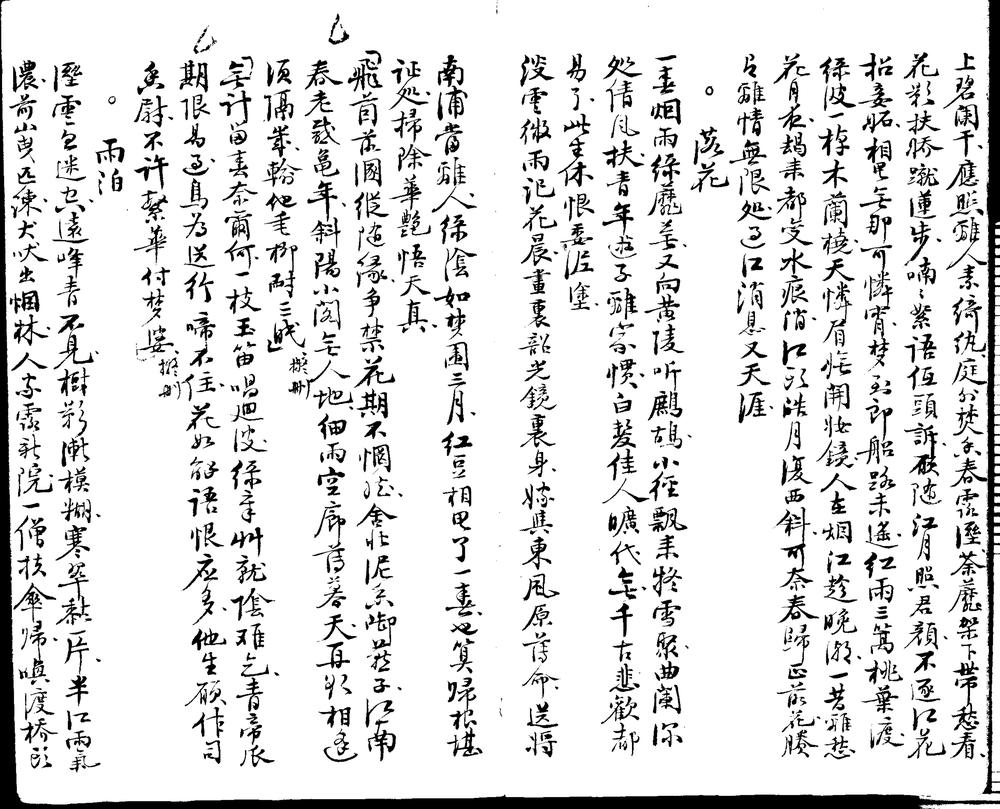 上碧闌干應照離人素綺紈庭外焚香春露溼荼蘼架下帶愁看
花影扶嬌蹴蓮步喃〻絮語低頭訴願隨江月照君顏不逐江花
招妾妬相思無那可憐宵夢到郎船路未遙紅雨三篙桃葉渡
綠波一桴木蘭橈天憐眉恨開妝鏡人在烟江趁晚潮一昔離愁
花月夜朅來都變水痕消江頭皓月復西斜可奈春歸正落花賸
有離情無限處過江消息又天涯
落花
一春烟雨綠蘼蕪又向黃陵听鷓鴣小徑飄來疑雪聚曲闌深
处倩風扶青年遊子離家慣白髮佳人曠代無千古悲歡都
易了此生休恨委泥塗
淡雲微雨記花晨畫裏韶光鏡裏身嫁與東風原薄命送將
南浦當離人綠陰如夢圍三月紅豆相思了一春也算歸根堪
証处掃除華艷悟天真
飛茵茵國從隨緣爭禁花期不悃然舍北泥香啣燕子江南
春老感龜年斜陽小閣無人地細雨空廊薄暮天再昐相逢
須隔歲輸他毛柳耐三眠 擬刪
無計留春奈爾何一枝玉笛唱迴波綠章艸就陰難乞青帝辰
期限易過鳥為送行啼不住花如解語恨應多他生願作司
香尉不許繁華付夢婆 擬刪
雨泊
溼雲無迷遠峰青不見樹影漸模糊寒翠黏一片半江雨氣
濃前山曳匹練犬吠出烟林人家露新院一僧扶傘歸喚渡橋頭